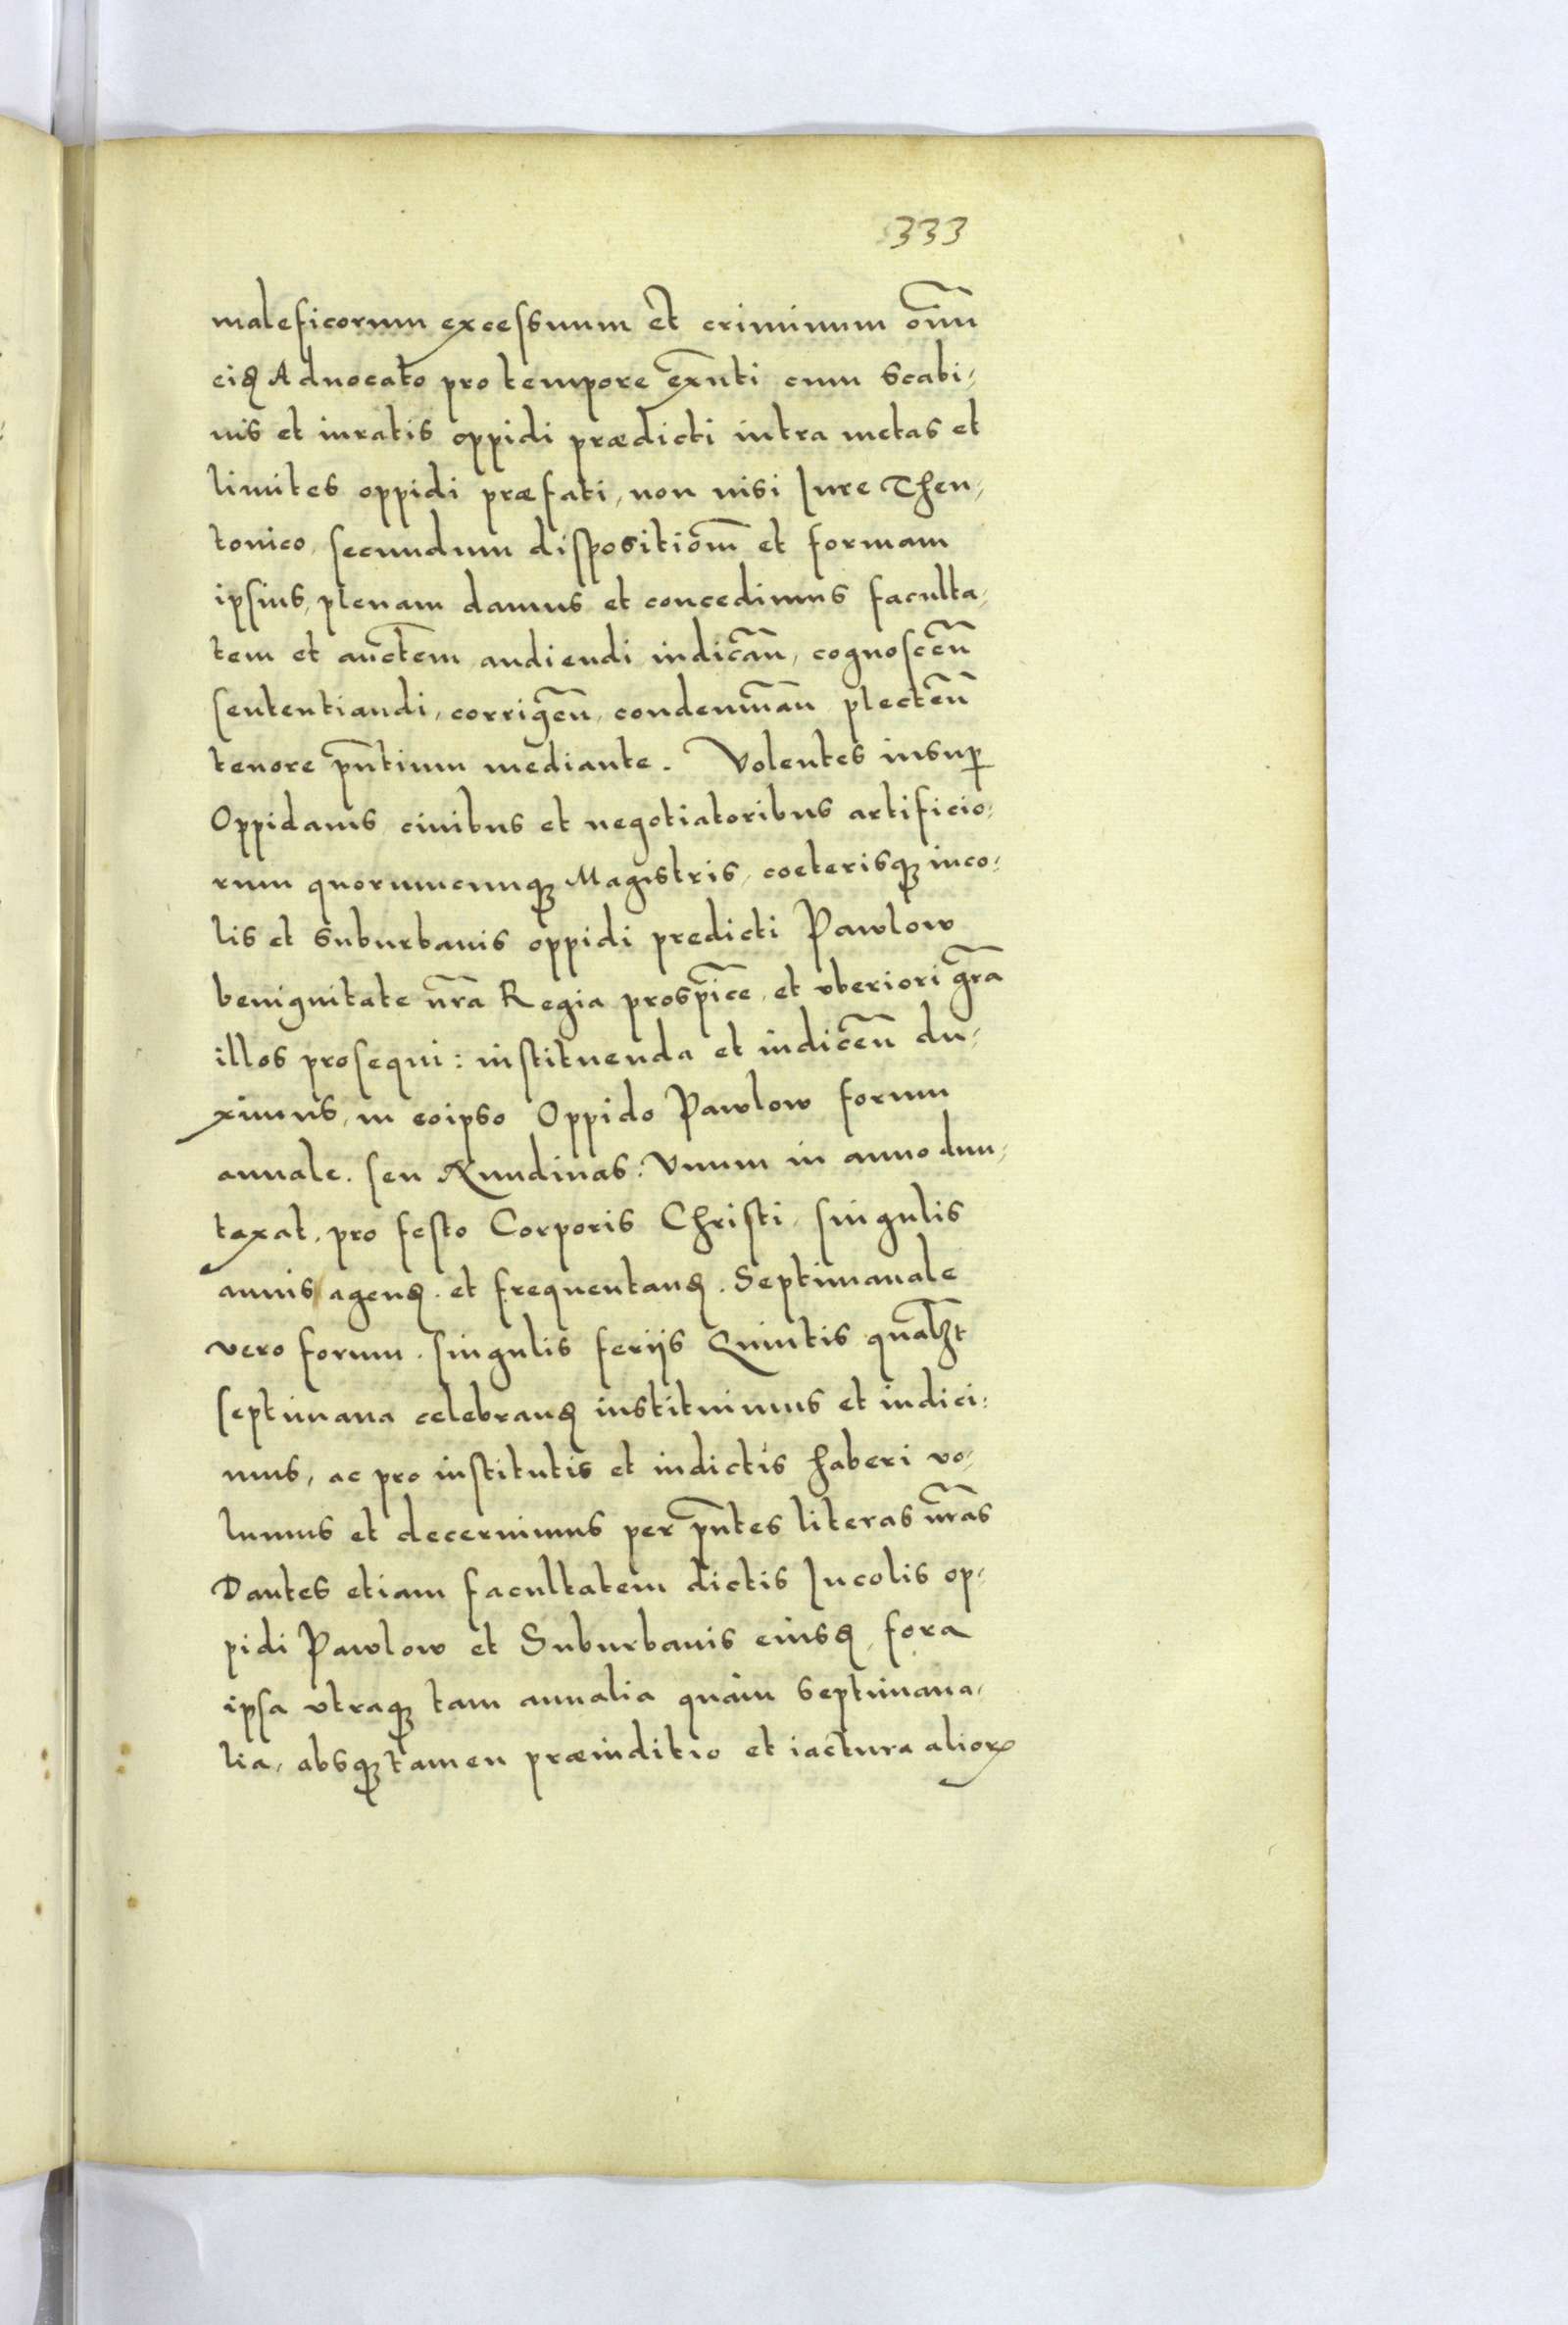 333
maleficorum excessuum et criminum om̃n
eiꝸ Aduocato pro tempore exñti cum Scabi⸗
nis et iuratis oppidi prædicti intra metas et
limites oppidi præfati, non nisi Iure Theu⸗
tonico, secundum dispositiõm et formam
ipsius, plenam damus et concedimus faculta⸗
tem et auctẽm audiendi iudicañ, cognosceñ
sententiandi, corrigeñ, condemnañ plecteñ
tenore pñtium mediante. Volentes insuꝑ
Oppidanis ciuibus et negotiatoribus artificio⸗
rum quorumcunqꝫ Magistris, coeterisqꝫ inco⸗
lis et suburbanis oppidi predicti Pawlow
benignitate nr̃a Regia prospic̃e, et vberiori gr̃a
illos prosequi: instituenda et indiceñ du⸗
ximus, in eoipso Oppido Pawlow forum
annale. seu Nundinas: Vnum in anno dun⸗
taxat, pro festo Corporis Christi, singulis
annis agenꝸ. et frequentanꝸ. Septimanale
vero forum. singulis feriis Quintis qualꝫt
septimana celebranꝸ instituimus et indici⸗
mus, ac pro institutis et indictis haberi vo⸗
lumus et decernimus per pñtes literas nr̃as
Dantes etiam facultatem dictis Incolis op⸗
pidi Pawlow et Suburbanis eiusꝸ, fora
ipsa vtraqꝫ tam annalia quàm septimana⸗
lia, absqꝫ tamen præiuditio et iactura alioꝝ